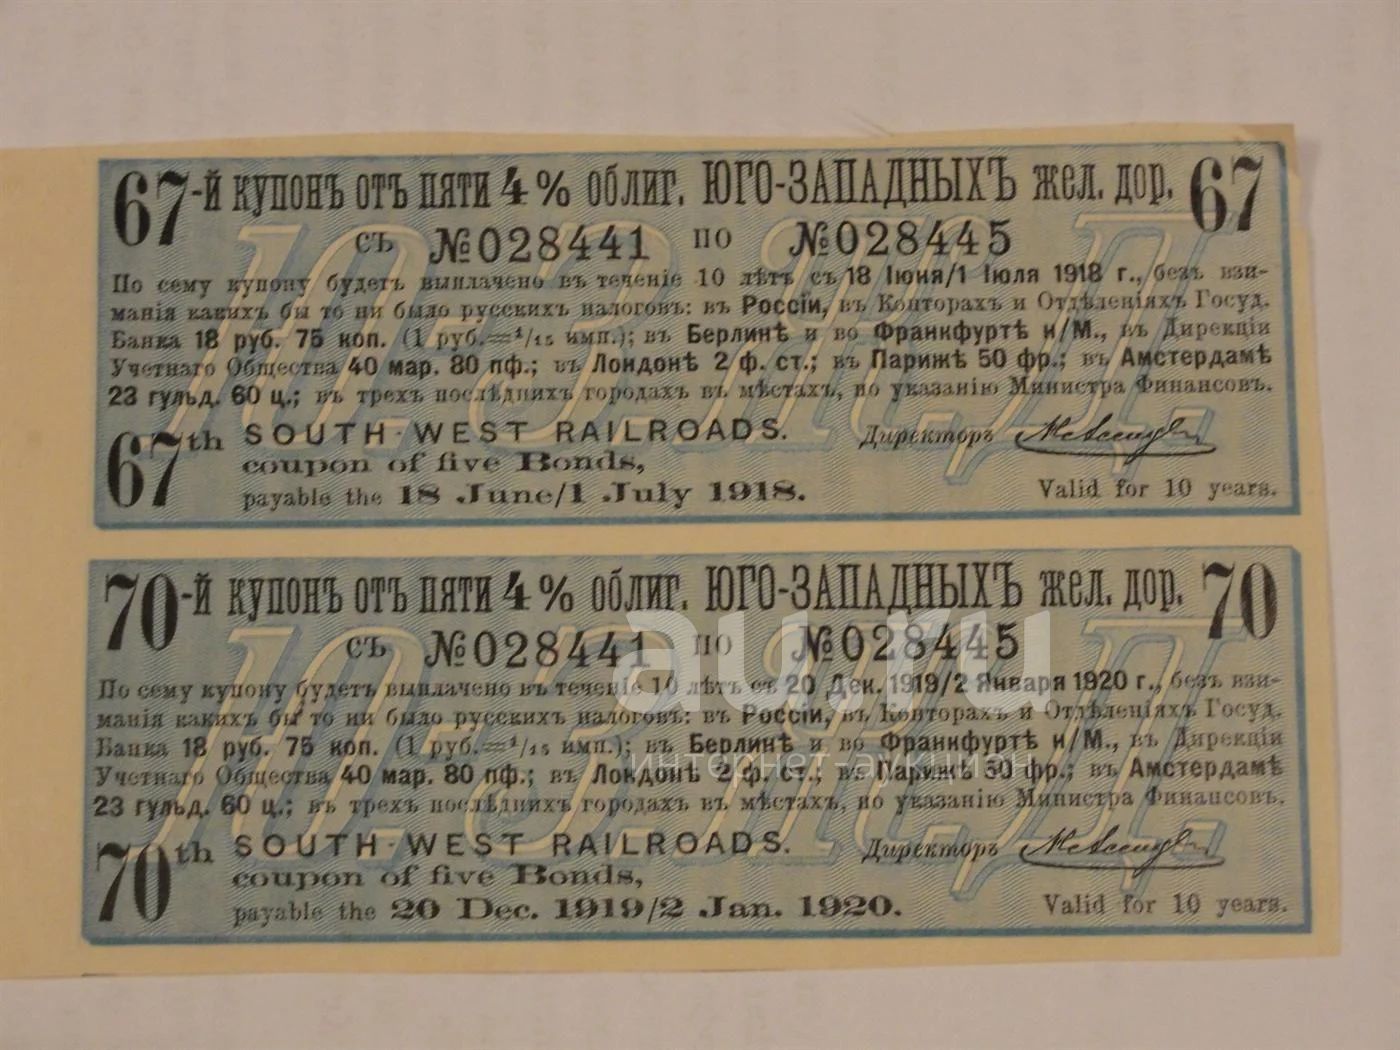 67-й купонъ отъ пяти 4% облиг. ЮГО-ЗАПАДНЫХЪ жел. дор. 67
съ №028441 по №028445
По сему купону будетъ выплачено въ теченіе 10 лѣтъ съ 18 Іюня/1 Іюля 1918 г., безъ взи-
манія какихъ бы то ни было русскихъ налоговъ: въ Россіи, въ Конторахъ и Отдѣленіяхъ Госуд.
Банка 18 руб. 75 коп. (1 руб.=1/15 имп.); въ Берлинѣ и во Франкфуртѣ н/М., въ Дирекціи
Учетнаго Общества 40 мар. 80 пф.; въ Лондонѣ 2 ф. ст.; въ Парижѣ 50 фр.; въ Амстердамѣ
23 гульд. 60 ц.; въ трехъ послѣднихъ городахъ въ мѣстахъ, по указанію Министра Финансовъ.
67th SOUTH-WEST RAILROADS. Директоръ
coupon of five Bonds,
payable the 18 June/1 July 1918. Valid for 10 years.
70-й купонъ отъ пяти 4% облиг. ЮГО-ЗАПАДНЫХЪ жел. дор. 70
съ №028441 по №028445
По сему купону будетъ выплачено въ теченіе 10 лѣтъ съ 20 Дек. 1919/2 Января 1920 г., безъ взи-
манія какихъ бы то ни было русскихъ налоговъ: въ Россіи, въ Конторахъ и Отдѣленіяхъ Госуд.
Банка 18 руб. 75 коп. (1 руб.=1/15 имп.); въ Берлинѣ и во Франкфуртѣ н/М., въ Дирекціи
Учетнаго Общества 40 мар. 80 пф.; въ Лондонѣ 2 ф. ст.; въ Парижѣ 50 фр.; въ Амстердамѣ
23 гульд. 60 ц.; въ трехъ послѣднихъ городахъ въ мѣстахъ, по указанію Министра Финансовъ.
70th SOUTH-WEST RAILROADS. Директоръ
coupon of five Bonds,
payable the 20 Dec. 1919/2 Jan. 1920. Valid for 10 years.
au.ru
интернет-аукцион